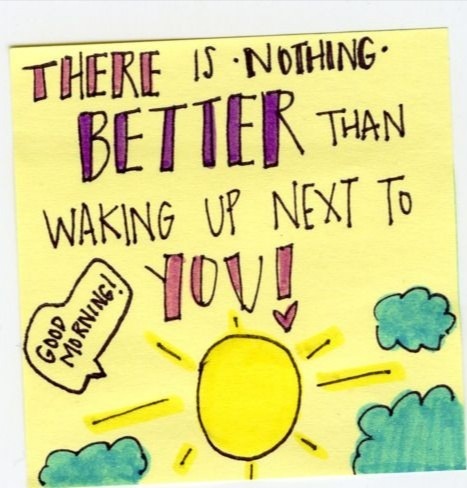 THERE IS · NOTHING ·
BETTER THAN
WAKING UP NEXT TO
YOU!
GOOD
MORNING!